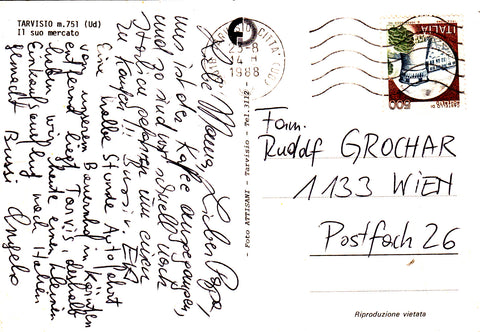 TARVISIO m.751 (Ud)
Il suo mercato
Liebe Mama, Lieber Papa,
uns ist der Kaffee ausgegangen,
und so sind wir schnell nach
Italien gefahren um einen
zu kaufen!! Bussi
Eine halbe Stunde Autofahrt
von unserem Bauernhof in Kärnten
entfernt liegt Tarvis deshalb
haben wir heute einen kleinen
Einkaufsausflug nach Italien
gemacht Bussi Angelo
- Foto ATTISANI - Tarvisio - Tel. 2112 -
1988
ITALIA
500
Fam.
Rudolf GROCHAR
1133 WIEN
Postfach 26
Riproduzione vietata